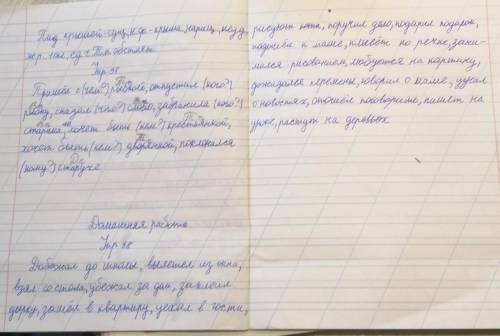 Под крышей-сущ, н.ф.-крыша, нариц, неод,
жер. 1 скл, ед.ч Т.п.
Упр. 95
Пришёл с (чем?) рыбкой, отпустил (кого?)
рыбку, сказал (чего?) слово, забранила (кого?)
старика, хочет быть (кем?) крестьянкой,
хочет быть (кем?) дворянкой, поклонился
(кому?) старухе.
Домашняя работа
Упр. 98
Добежал до школы, вылетел из окна,
взял со стола, убежал за дом, заклеил
дырку, зашёл в квартиру, уехал в гости,
рисуют кота, поручил дело, подарил подарок,
подошёл к маме, плывёт по речке, зани-
мался рисованием, любуется на картину,
дождался перемены, говорил о маме, узнал
о новостях, отошёл поговорить, пишет на
уроке, растут на деревьях